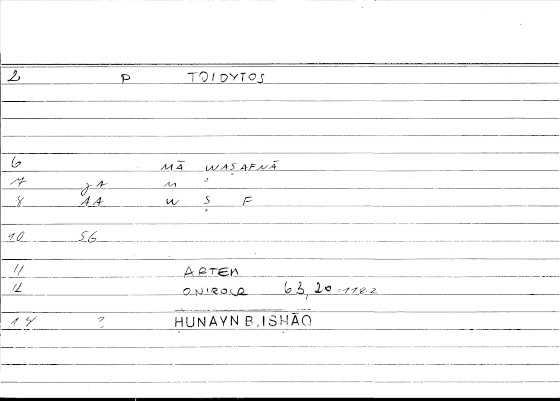 2 P TOIOYTOS
6 MĀ WAṢAFNĀ
7 JA M '
8 AA W Ṣ F
10 SG
11 ARTEM
12 ONIROCR 63,20-118.2
14 ? ḤUNAYN B. ISḤĀQ